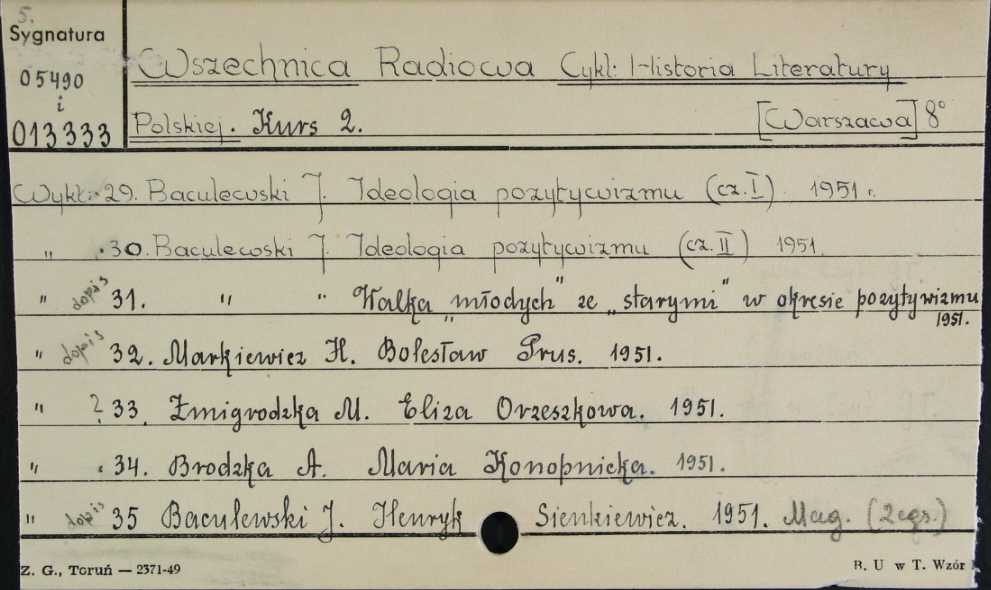 5.
Sygnatura
05490
i
013333
Wszechnica Radiowa Cykl: Historia Literatury
Polskiej. Kurs 2. [Warszawa] 8°
Wykł. 29. Baculewski J. Ideologia pozytywizmu (cz. I) 1951 r.
" 30. Baculewski J. Ideologia pozytywizmu (cz. II) 1951.
" dopis 31. " " Walka „młodych" ze „starymi" w okresie pozytywizmu
1951.
" dopis 32. Markiewicz H. Bolesław Prus. 1951.
" ? 33. Żmigrodzka M. Eliza Orzeszkowa. 1951.
" 34. Brodzka A. Maria Konopnicka. 1951.
" dopis 35 Baculewski J. Henryk Sienkiewicz. 1951. Mag. (2 egz.)
Z. G., Toruń — 2371-49
B. U w T. Wzór